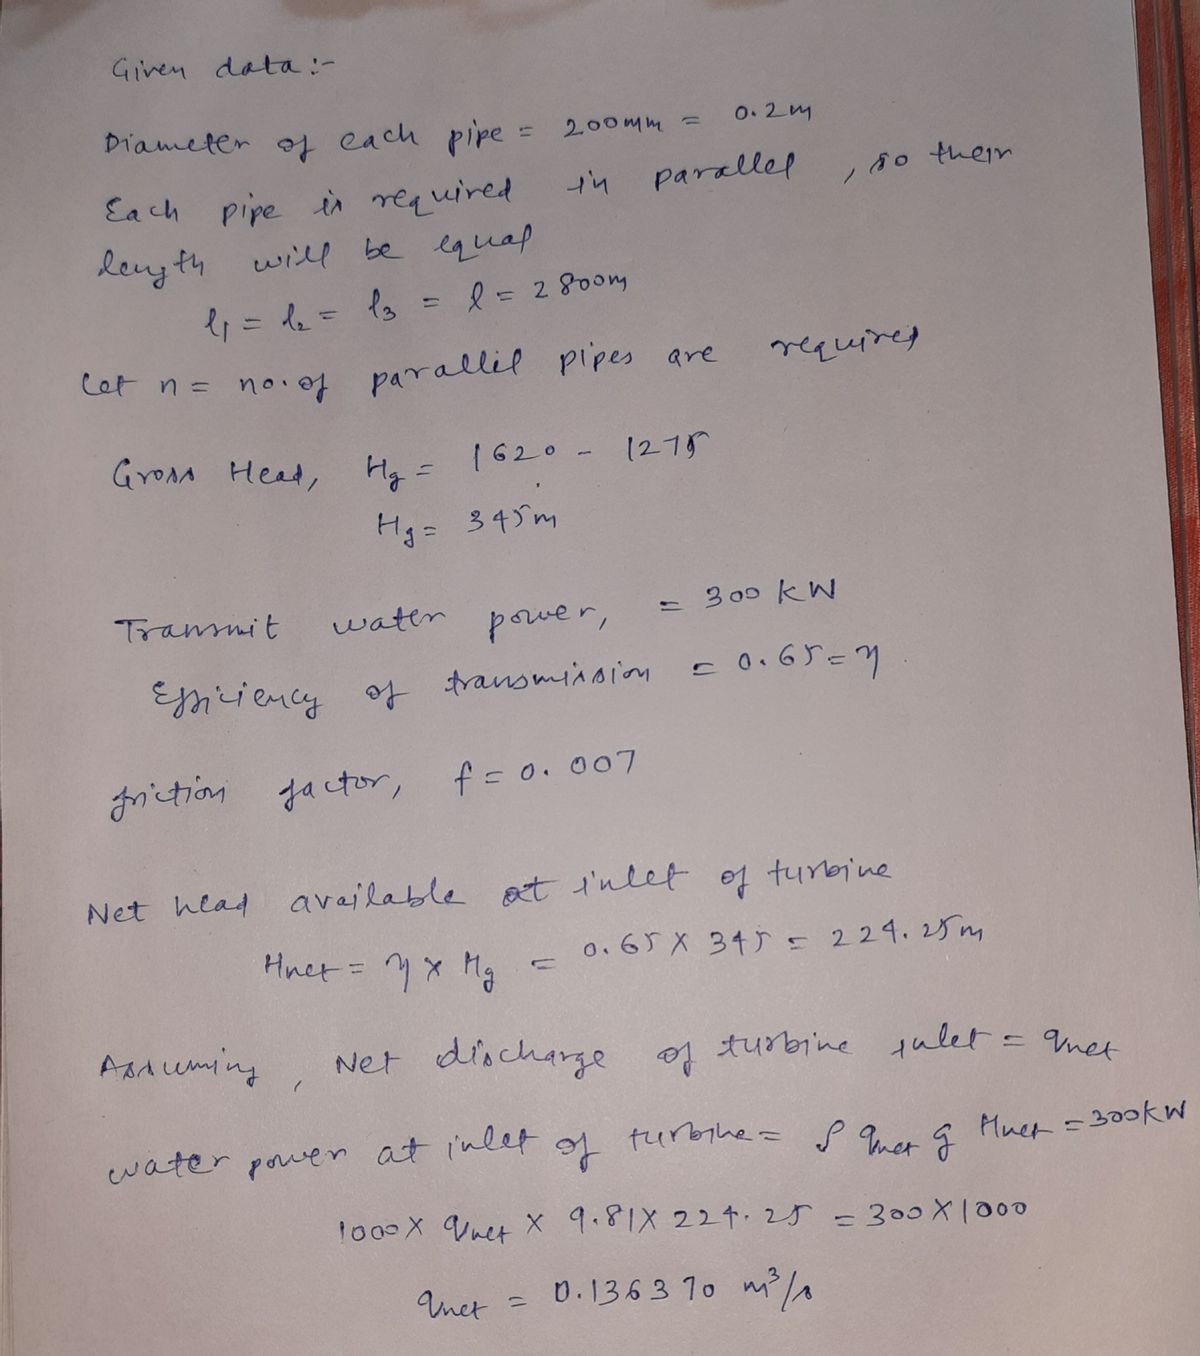 Given data :-
Diameter of each pipe = 200mm = 0.2m
Each pipe is required in parallel , so their
length will be equal
l₁ = l₂ = l₃ = l = 2800m
Let n = no. of parallel pipes are required
Gross Head, Hg = 1620 - 1275
Hg = 345m
Transmit water power, = 300 kW
Efficiency of transmission = 0.65 = η
friction factor, f = 0.007
Net head available at inlet of turbine
Hnet = η × Hg = 0.65 × 345 = 224.25m
Assuming , Net discharge of turbine inlet = qnet
water power at inlet of turbine = ρ qnet g Hnet = 300kW
1000 × qnet × 9.81 × 224.25 = 300 × 1000
qnet = 0.136370 m³/s